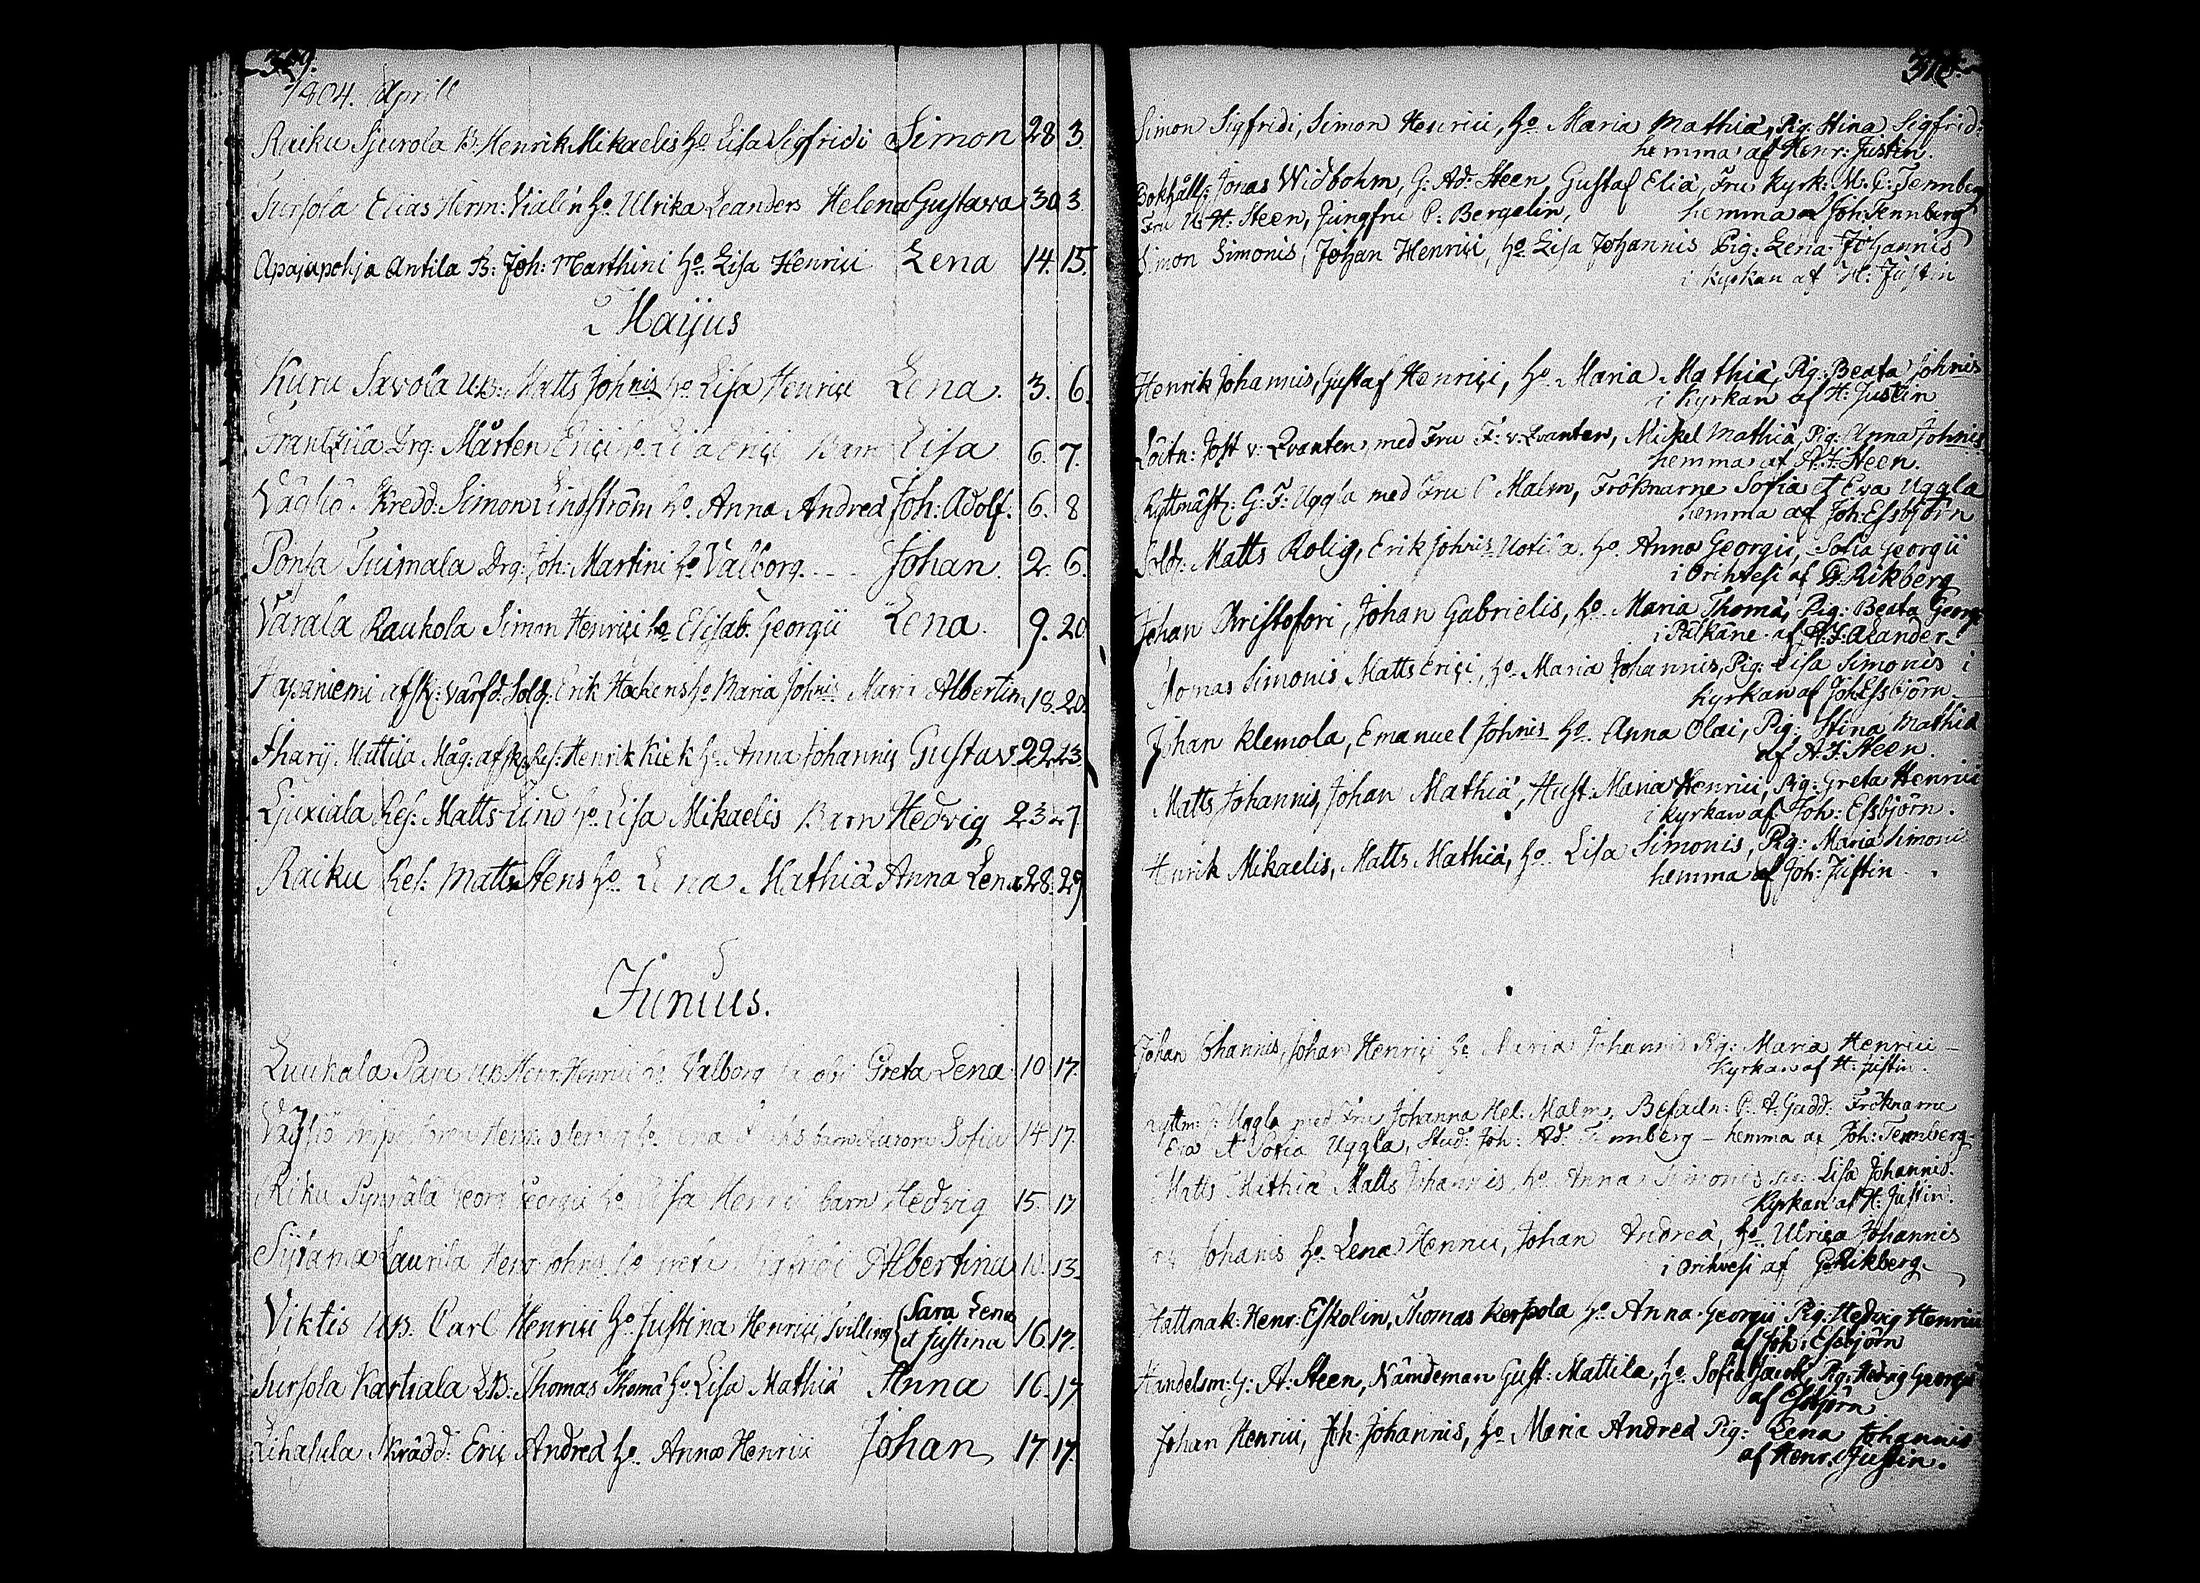 1804. Aprill
Raiku Sjurola B: Henrik Mikaelis ho. Lisa Sigfridi Simon 28 3.
Sursola Elias Herm: Vialén ho. Ulrika Leanders Helena Gustava 30. 3.
Apajapohja Antila B: Joh: Marthini ho. Lisa Henrici Lena 14. 15.
Maijus
Kyru Savola UB: Matts Johnis ho. Lisa Henrici Lena. 3. 6.
Frantzila Drg: Mårten Erici Barn Lisa 6. 7.
Vägliö Skredd: Simon Lindström ho. Anna Andreä Joh: Adolf. 6. 8
Ponsa Tuimala Drg: Joh: Martini ho Valborg. - - - Johan. 2. 6.
Varala Raukola Simon Henrici ho Elisab. Georgii Lena. 9. 20
Hapaniemi afsk: värfd: Sold: Erik ho Maria Johnis Mari Albertin. 18. 20.
Mattila Måg: afsk: Res: Henrik Kiek ho. Anna Johannis Gustav. 22. 23.
Ljuxiala Res: Matts Lind ho. Lisa Mikaelis Barn Hedvig 23 27
Raiku Res: Matts Stens ho. Lena Mathiä Anna Lena 28. 29
Junius.
Luukala Papi UB: Henr: Henrici ho Valborg Greta Lena 10. 17.
Vägliö barn Aurora Sofia 14 17.
Riku Georg Georgii ho Lisa Henrici barn Hedvig 15. 17
Laurila Henr: Johnis ho Greta Sigfridi Albertina 10. 13.
Viktis UB. Carl Henrici ho Justina Henrici, tvilling {Sara Lena et Justina 16. 17.
Sursola Kartiala LB. Thomas Thomä ho. Lisa Mathiä Anna 16. 17
Lihasula Skrädd: Eric Andreä ho. Anna Henrici Johan 17. 17.
Simon Sigfridi, Simon Henrici, ho Maria Mathiä, Pig: Stina Sigfrid:
hemma af Henr: Justin.
Bokhåll: Jonas Widbohm, G: Ad: Steen, Gustaf Eliä, Fru Kyrk: M: C: Tennberg
Fru U: H: Steen, Jungfru P: Bergelin, hemma af Joh: Tennberg
Simon Simonis, Johan Henrici, ho Lisa Johannis Pig: Lena Johannis
i kyrkan af H: Justin
Henrik Johannis, Gustaf Henrici, ho Maria Mathiä, Pig: Beata Johnis
i kyrkan af H: Justin
Löitn: Jost v: Qvanten, med Fru F: v: Qvanten, Mickel Mathiä, Pig: Anna Johnis
hemma af A: J: Steen.
Ryttmäst: G: F: Uggla med Fru C Malm, Fröknarne Sofia et Eva Uggla
hemma af Joh: Essbjörn
Sold: Matts Rolig, Erik Johnis Uotila ho Anna Georgii, Sofia Georgii
i Orihvesi af G: Rikberg
Johan Kristofori, Johan Gabrielis, ho Maria Thomä, Pig: Beata Georg:
i Pälkäne af
Thomas Simonis Matts Erici, ho Maria Johannis, Pig: Lisa Simonis i
kyrkan af Joh: Essbjörn.
Johan Klemola, Emanuel Johnis ho. Anna Olai, Pig: Stina Mathiä
af A: J: Steen.
Matts Johannis, Johan Mathiä, Hust: Maria Henrici, Pig: Greta Henrici
i kyrkan af Joh: Essbjörn.
Henrik Mikaelis, Matts Mathiä, ho Lisa Simonis, Pig: Maria Simonis
hemma af Joh: Justin.
Johan Johannis, Johan Henrici ho Maria Johannis Pig: Maria Henrici
kyrkan af H: Justin.
Ryttm: Uggla med Fru Johanna Hel: Malm, P: A: Gadd: Fröknarne
Eva et Sofia Uggla, Stud: Joh: Ad: Tennberg - hemma af Joh: Tennberg
Matts Mathiä Matts Johannis, ho Anna Simonis, Lisa Johannis.
kyrkan af H: Justin.
Johanis ho. Lena Henrici, Johan Andreä, ho. Ulrica Johannis
i Orihvesi af G: Rikberg.
Hattmak: Henr: Eskolin, Thomas Kerpola ho Anna Georgii Pig: Hedvig Henrici
af Joh: Essbjörn
Handelsm: G: A: Steen, Nämdeman Gust: Mattila, ho. Sofia Jacob, Pig: Hedvig Georgii
af Essbjörn
Johan Henrici, Joh: Johannis, ho Maria Andreä Pig: Lena Johannis
af Henr: Justin.